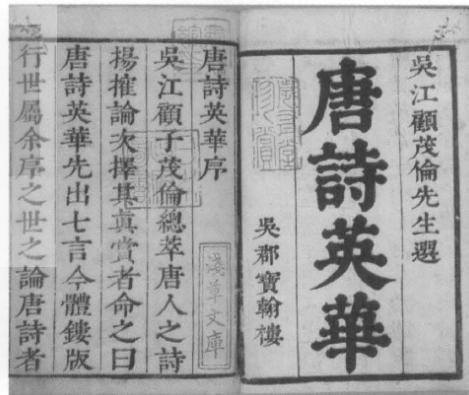 吳江顧茂倫先生選
唐詩英華
吳郡寶翰樓
唐詩英華序
吳江顧子茂倫總萃唐人之詩
揚搉論次擇其真賞者命之曰
唐詩英華先出七言今體鏤版
行世屬余序之世之論唐詩者
淺草文庫